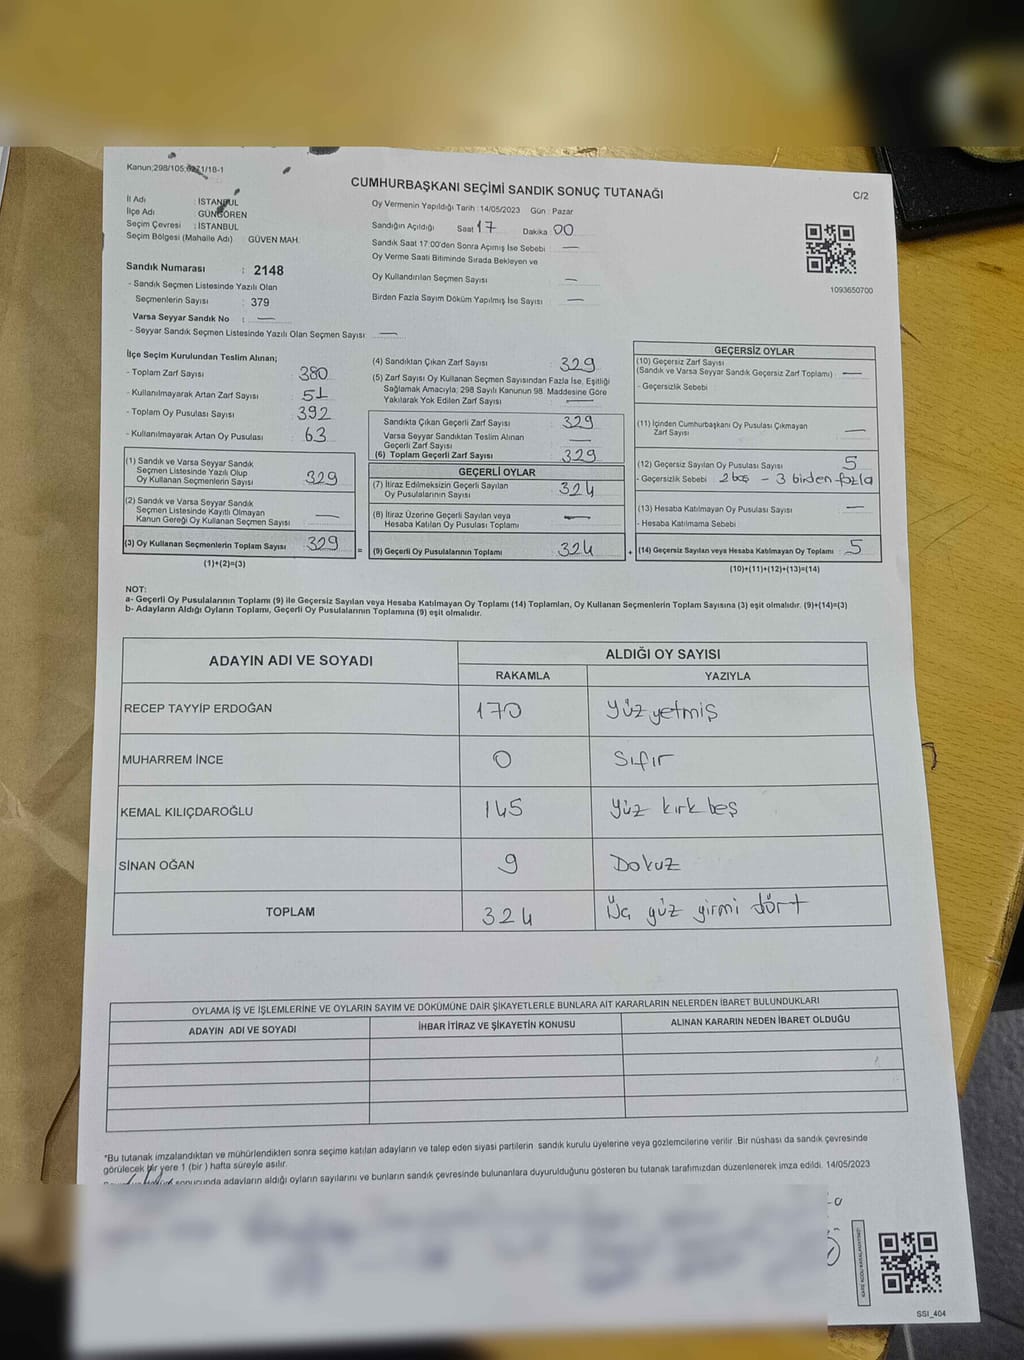 Kanun;298/105;6271/18-1
CUMHURBAŞKANI SEÇİMİ SANDIK SONUÇ TUTANAĞI
C/2
İl Adı : İSTANBUL
İlçe Adı : GÜNGÖREN
Seçim Çevresi : İSTANBUL
Seçim Bölgesi (Mahalle Adı) : GÜVEN MAH.
Sandık Numarası : 2148
- Sandık Seçmen Listesinde Yazılı Olan
Seçmenlerin Sayısı : 379
Varsa Seyyar Sandık No : —
- Seyyar Sandık Seçmen Listesinde Yazılı Olan Seçmen Sayısı: —
Oy Vermenin Yapıldığı Tarih : 14/05/2023 Gün : Pazar
Sandığın Açıldığı Saat 17 Dakika 00
Sandık Saat 17:00'den Sonra Açımış İse Sebebi : —
Oy Verme Saati Bitiminde Sırada Bekleyen ve
Oy Kullandırılan Seçmen Sayısı —
Birden Fazla Sayım Döküm Yapılmış İse Sayısı : —
1093650700
İlçe Seçim Kurulundan Teslim Alınan;
- Toplam Zarf Sayısı 380
- Kullanılmayarak Artan Zarf Sayısı : 51
- Toplam Oy Pusulası Sayısı : 392
- Kullanılmayarak Artan Oy Pusulası : 63
(1) Sandık ve Varsa Seyyar Sandık
Seçmen Listesinde Yazılı Olup
Oy Kullanan Seçmenlerin Sayısı : 329
(2) Sandık ve Varsa Seyyar Sandık
Seçmen Listesinde Kayıtlı Olmayan
Kanun Gereği Oy Kullanan Seçmen Sayısı : —
(3) Oy Kullanan Seçmenlerin Toplam Sayısı : 329
(1)+(2)=(3)
=
(4) Sandıktan Çıkan Zarf Sayısı : 329
(5) Zarf Sayısı Oy Kullanan Seçmen Sayısından Fazla İse, Eşitliği
Sağlamak Amacıyla; 298 Sayılı Kanunun 98. Maddesine Göre
Yakılarak Yok Edilen Zarf Sayısı : —
Sandıkta Çıkan Geçerli Zarf Sayısı : 329
Varsa Seyyar Sandıktan Teslim Alınan
Geçerli Zarf Sayısı : —
(6) Toplam Geçerli Zarf Sayısı : 329
GEÇERLİ OYLAR
(7) İtiraz Edilmeksizin Geçerli Sayılan
Oy Pusulalarının Sayısı : 324
(8) İtiraz Üzerine Geçerli Sayılan veya
Hesaba Katılan Oy Pusulası Toplamı : —
(9) Geçerli Oy Pusulalarının Toplamı : 324
+
GEÇERSİZ OYLAR
(10) Geçersiz Zarf Sayısı
(Sandık ve Varsa Seyyar Sandık Geçersiz Zarf Toplamı) : —
- Geçersizlik Sebebi :
(11) İçinden Cumhurbaşkanı Oy Pusulası Çıkmayan
Zarf Sayısı : —
(12) Geçersiz Sayılan Oy Pusulası Sayısı : 5
- Geçersizlik Sebebi : 2 boş - 3 birden fazla
(13) Hesaba Katılmayan Oy Pusulası Sayısı : —
- Hesaba Katılmama Sebebi :
(14) Geçersiz Sayılan veya Hesaba Katılmayan Oy Toplamı : 5
(10)+(11)+(12)+(13)=(14)
NOT:
a- Geçerli Oy Pusulalarının Toplamı (9) ile Geçersiz Sayılan veya Hesaba Katılmayan Oy Toplamı (14) Toplamları, Oy Kullanan Seçmenlerin Toplam Sayısına (3) eşit olmalıdır. (9)+(14)=(3)
b- Adayların Aldığı Oyların Toplamı, Geçerli Oy Pusulalarının Toplamına (9) eşit olmalıdır.
ADAYIN ADI VE SOYADI
ALDIĞI OY SAYISI
RAKAMLA YAZIYLA
RECEP TAYYİP ERDOĞAN 170 Yüz yetmiş
MUHARREM İNCE 0 Sıfır
KEMAL KILIÇDAROĞLU 145 Yüz kırk beş
SİNAN OĞAN 9 Dokuz
TOPLAM 324 Üç yüz yirmi dört
OYLAMA İŞ VE İŞLEMLERİNE VE OYLARIN SAYIM VE DÖKÜMÜNE DAİR ŞİKAYETLERLE BUNLARA AİT KARARLARIN NELERDEN İBARET BULUNDUKLARI
ADAYIN ADI VE SOYADI İHBAR İTİRAZ VE ŞİKAYETİN KONUSU ALINAN KARARIN NEDEN İBARET OLDUĞU
*Bu tutanak imzalandıktan ve mühürlendikten sonra seçime katılan adayların ve talep eden siyasi partilerin sandık kurulu üyelerine veya gözlemcilerine verilir. Bir nüshası da sandık çevresinde
görülecek bir yere 1 (bir ) hafta süreyle asılır.
sonucunda adayların aldığı oyların sayılarını ve bunların sandık çevresinde bulunanlara duyurulduğunu gösteren bu tutanak tarafımızdan düzenlenerek imza edildi. 14/05/2023
SSI_404